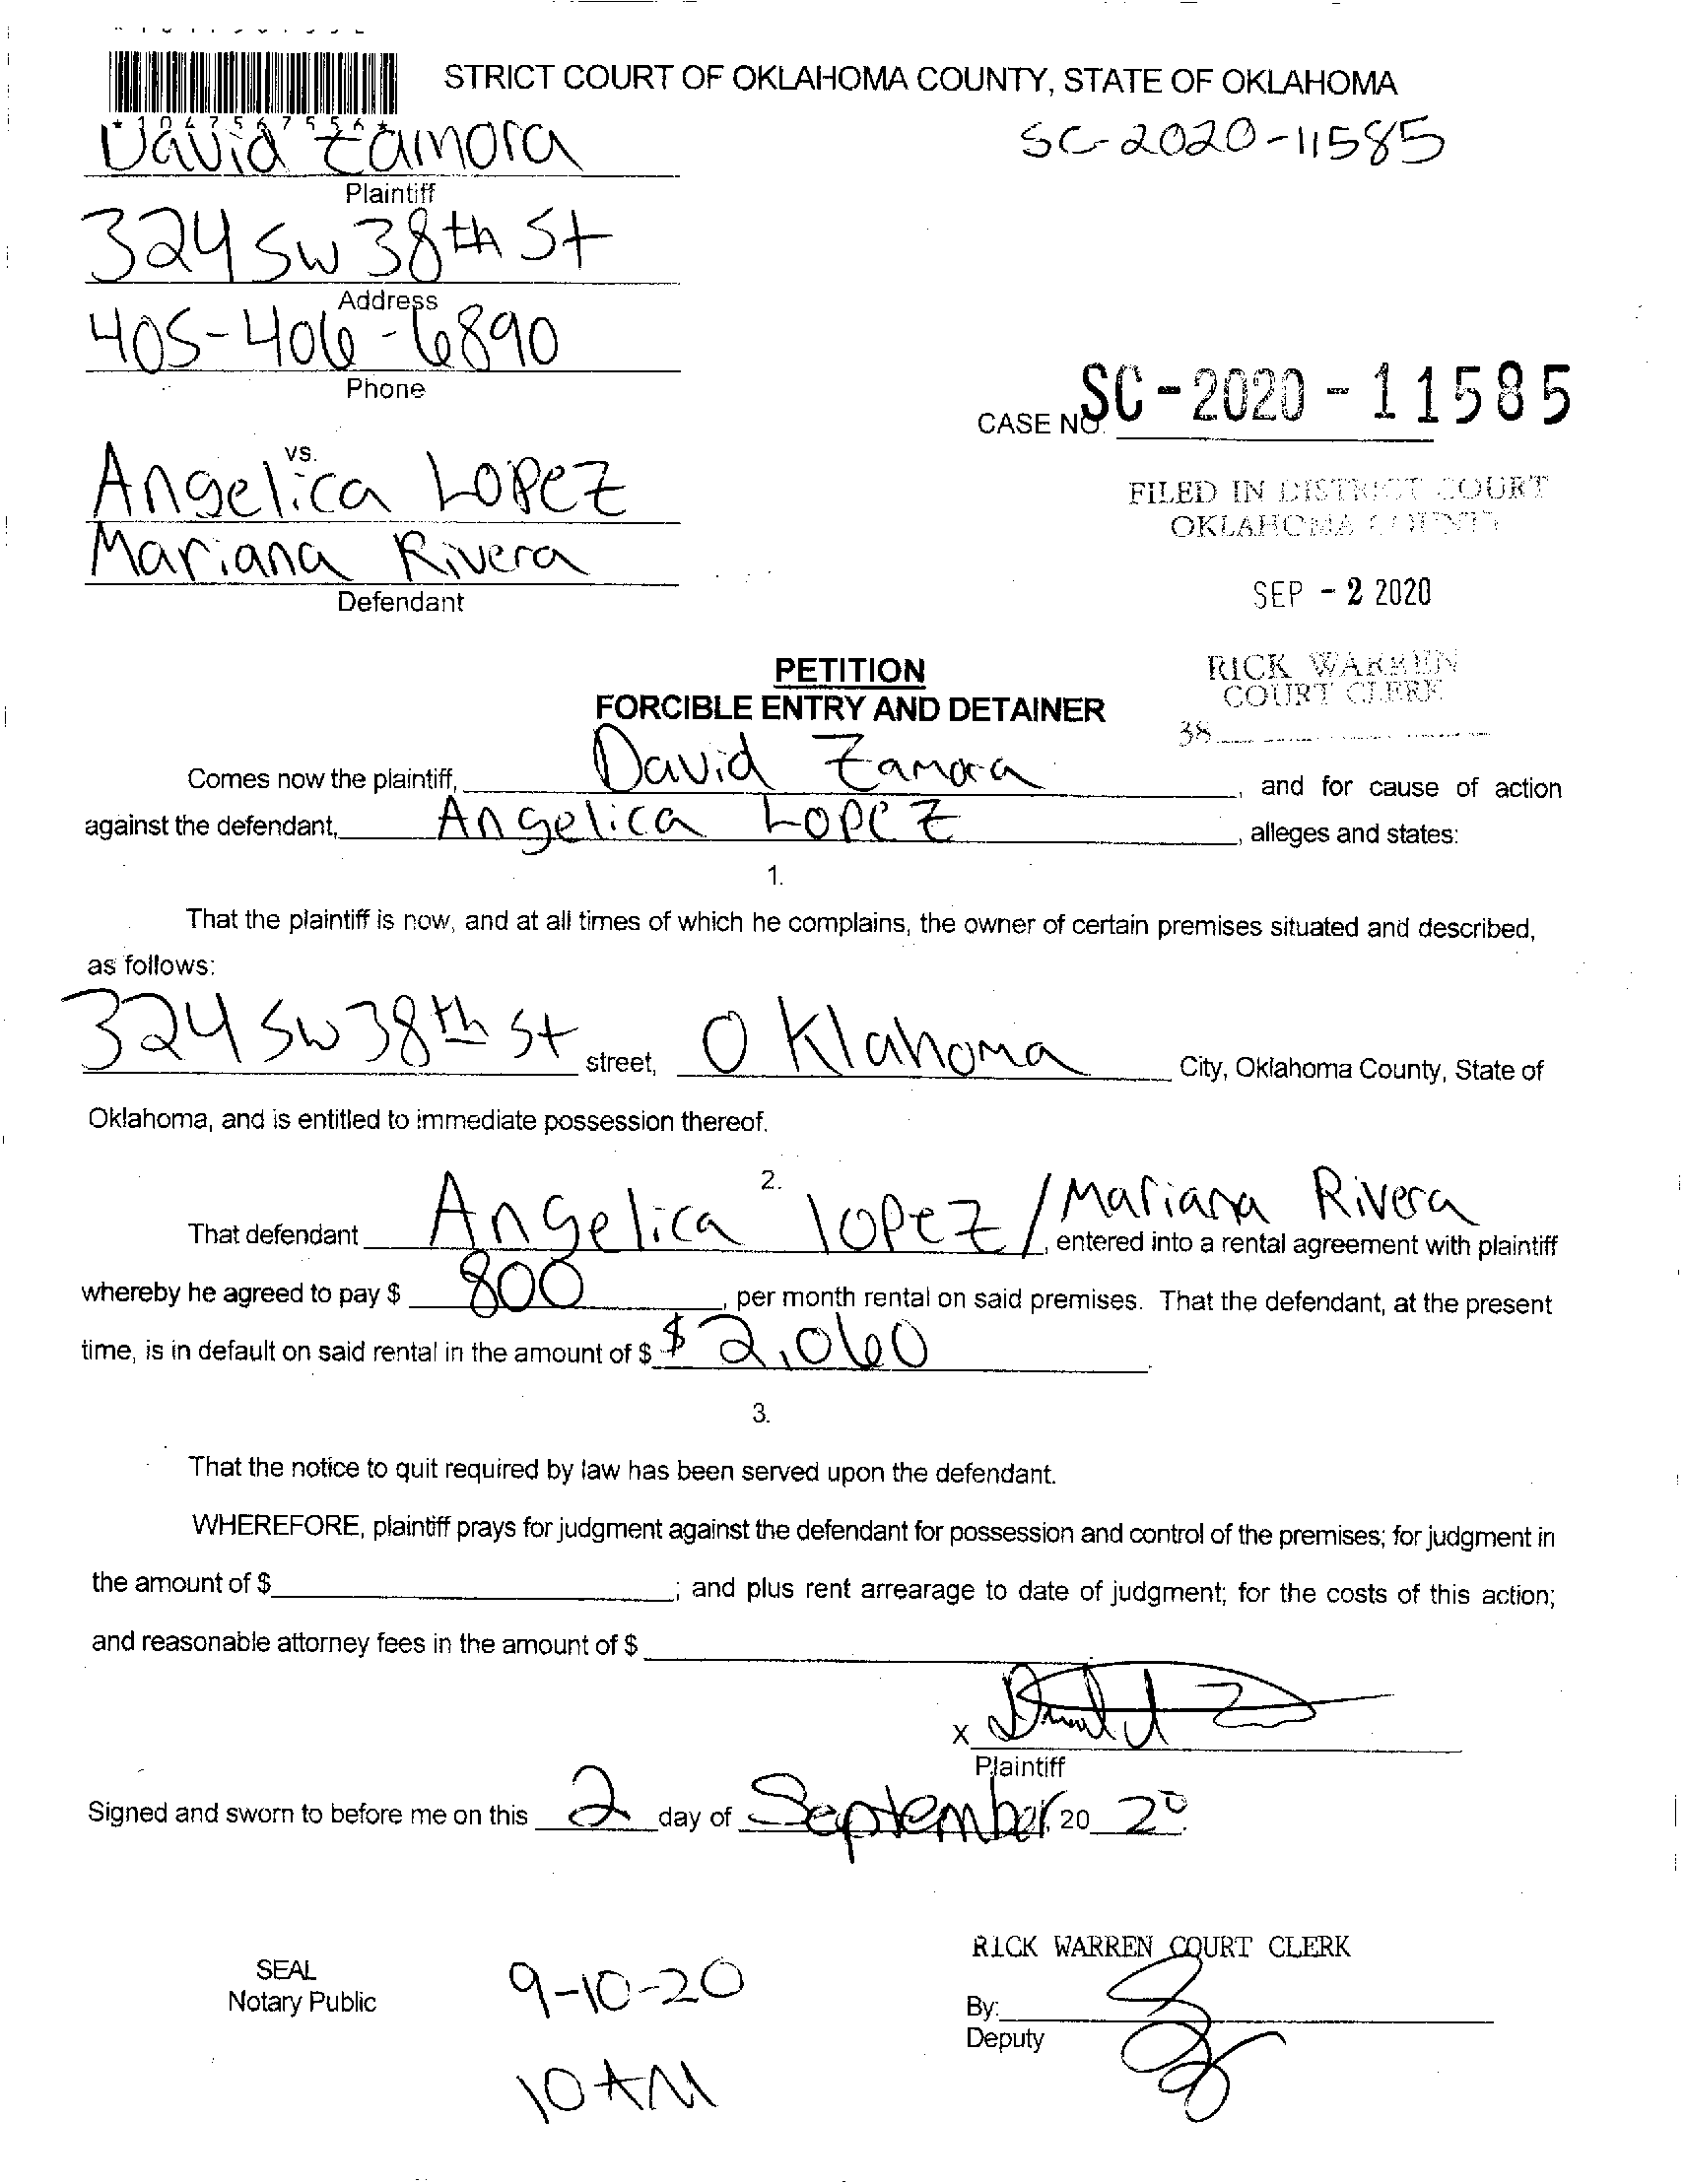 STRICT COURT OF OKLAHOMA COUNTY, STATE OF OKLAHOMA
*1047567556*
David Zamora
SC-2020-11585
Plaintiff
324 SW 38th St
Address
405-406-6890
Phone
CASE NO. SC-2020-11585
vs.
Angelica Lopez
Mariana Rivera
Defendant
FILED IN DISTRICT COURT
OKLAHOMA COUNTY
SEP - 2 2020
RICK WARREN
COURT CLERK
38
PETITION
FORCIBLE ENTRY AND DETAINER
Comes now the plaintiff, David Zamora, and for cause of action
against the defendant, Angelica Lopez, alleges and states:
1.
That the plaintiff is now, and at all times of which he complains, the owner of certain premises situated and described,
as follows:
324 SW 38th St street, Oklahoma City, Oklahoma County, State of
Oklahoma, and is entitled to immediate possession thereof.
2.
That defendant Angelica lopez / Mariana Rivera, entered into a rental agreement with plaintiff
whereby he agreed to pay $ 800, per month rental on said premises. That the defendant, at the present
time, is in default on said rental in the amount of $ $2,060
3.
That the notice to quit required by law has been served upon the defendant.
WHEREFORE, plaintiff prays for judgment against the defendant for possession and control of the premises; for judgment in
the amount of $ ; and plus rent arrearage to date of judgment; for the costs of this action;
and reasonable attorney fees in the amount of $
X
Plaintiff
Signed and sworn to before me on this 2 day of September, 20 20.
RICK WARREN COURT CLERK
SEAL
Notary Public
9-10-20
By:
Deputy
10 AM